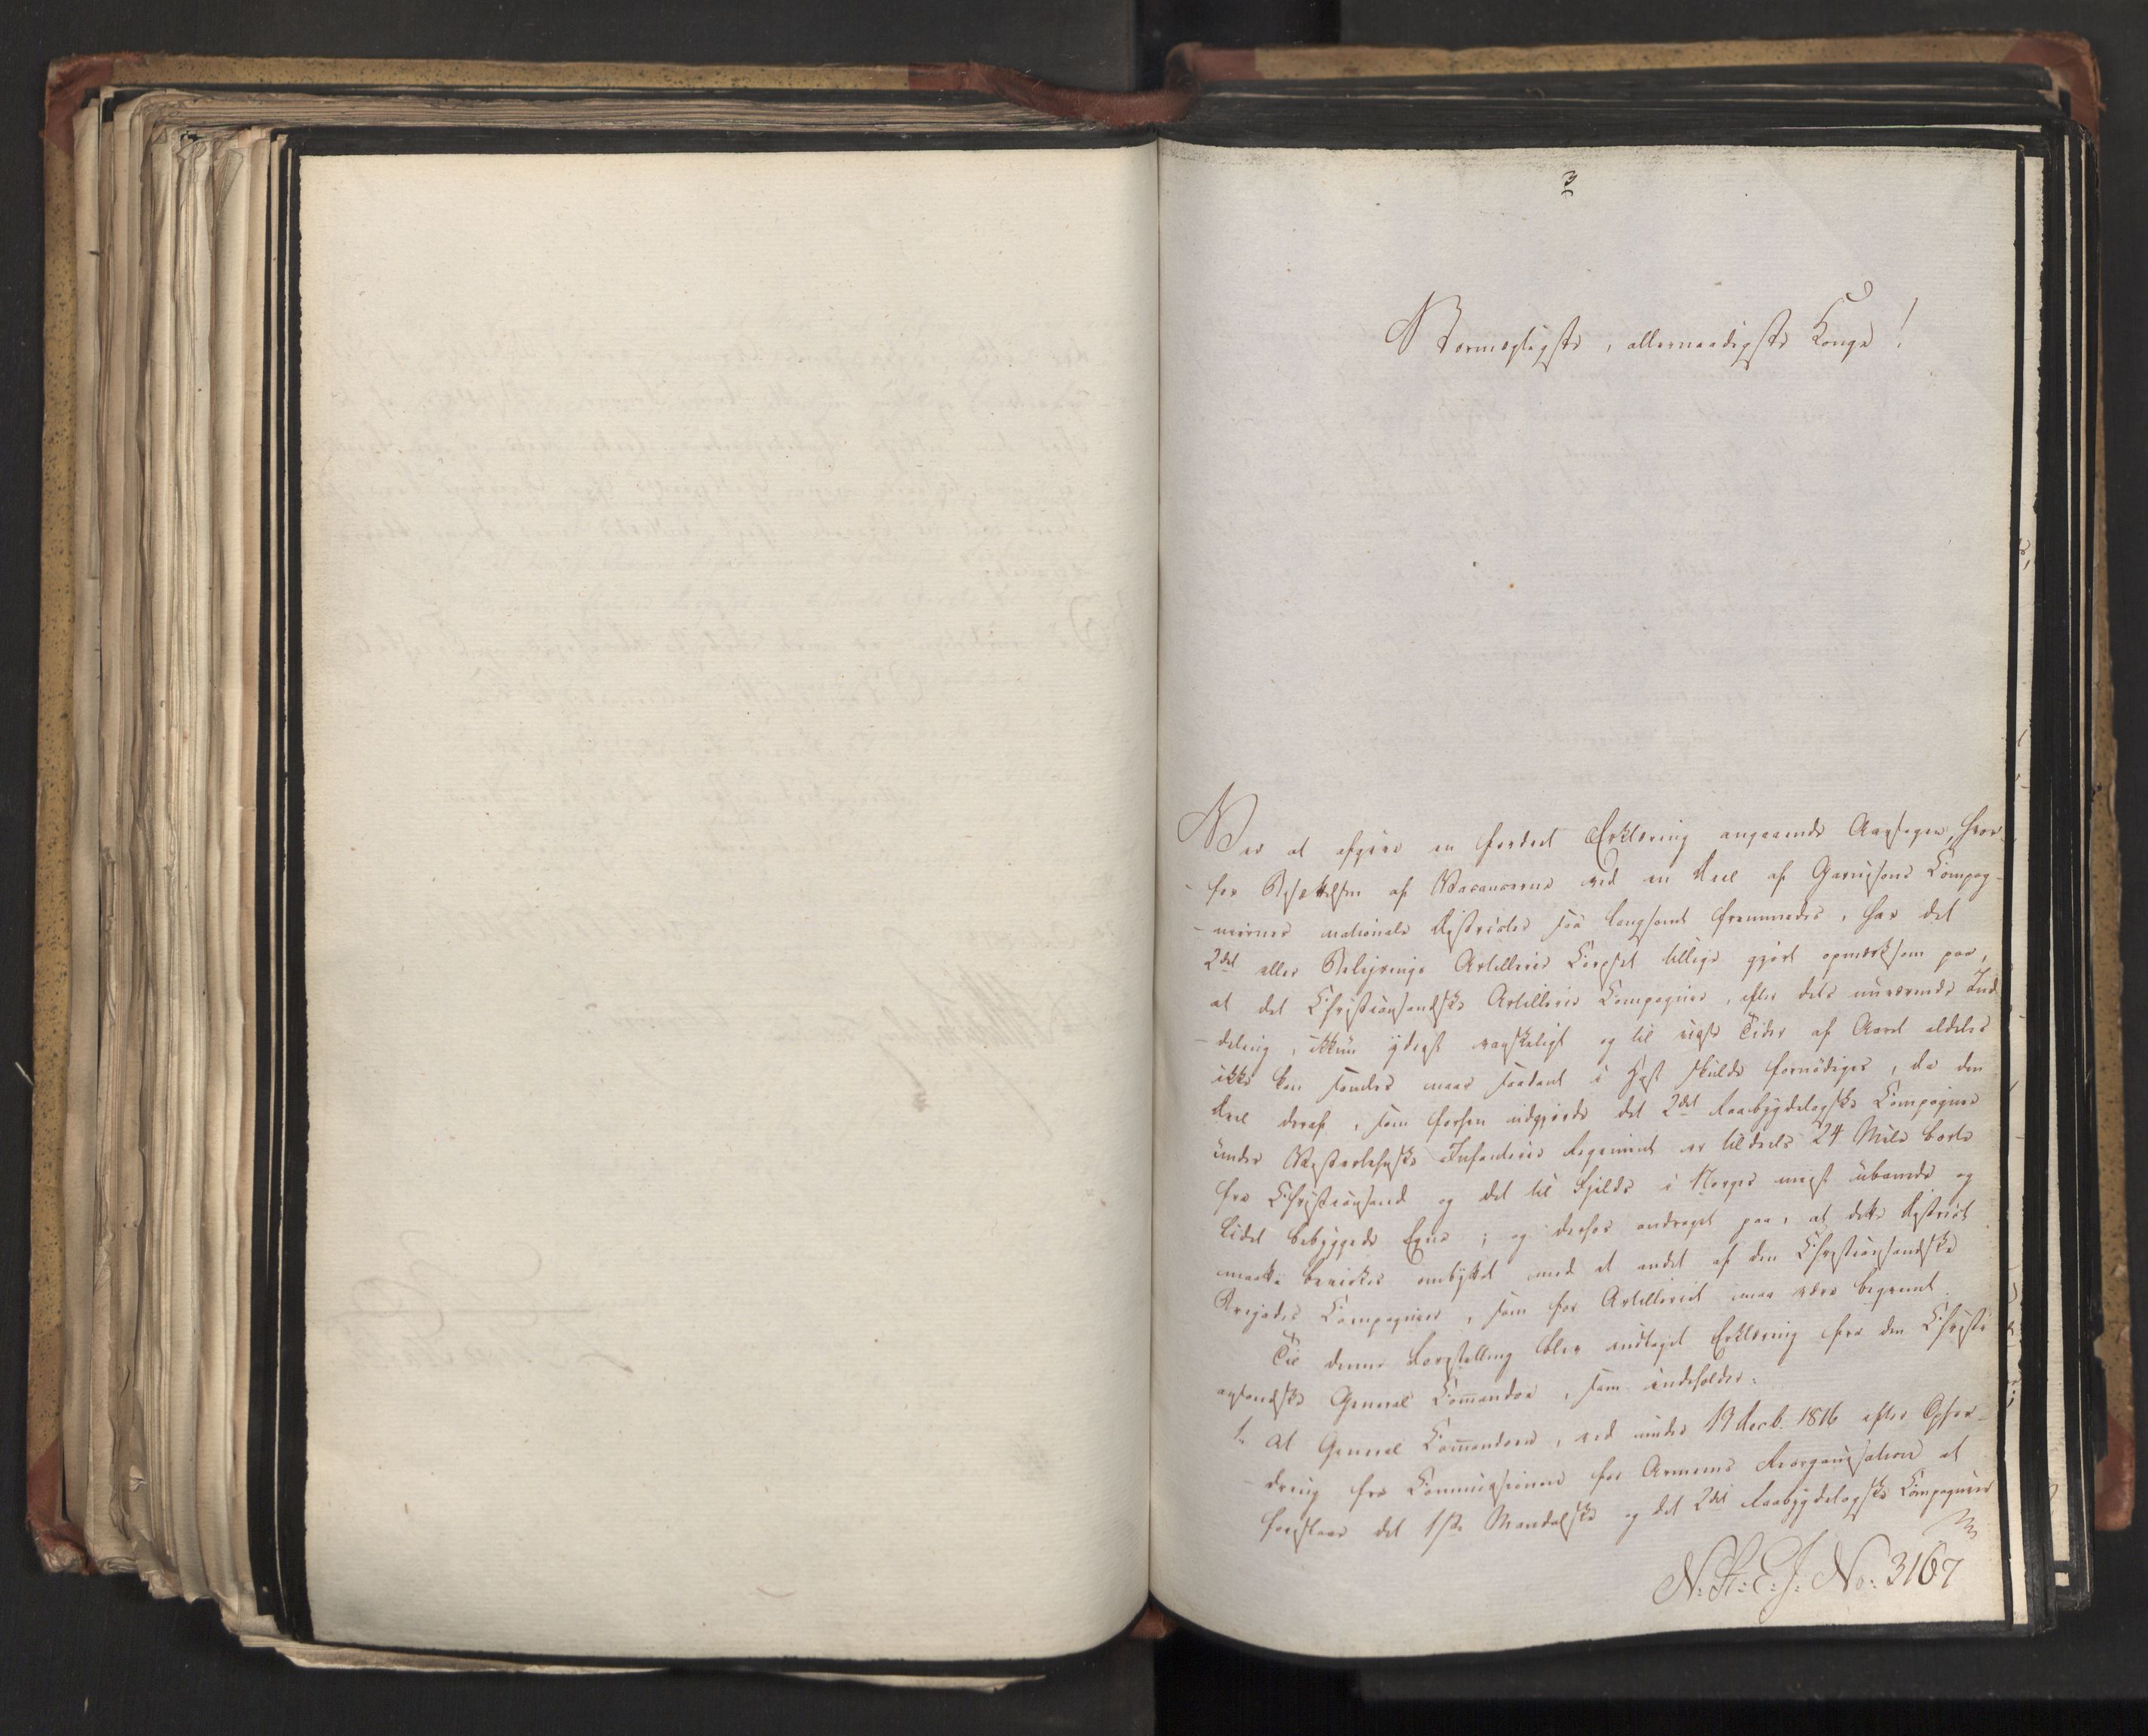 3
Stormægtigste, allernaadigste Konge!
Ved at afgive en fordret Erklæring angaaende Aarsagen, hvor-
for Besættelsen af Vacancerne ved en Deel af Garnisons Compag-
-niernes nationale Districter saa langsomt fremmedes, har det
2det eller Bergenske Artillerie Corpset tillige gjort opmærksom paa,
at det Christiansandske Artillerie Compagnie, efter dets nuværende Ind
-deling, ikkun yderst vanskeligt og til visse Tider af Aaret aldeles
ikke kan samles naar saadant i Hast skulde fornødiges, da den
Deel deraf, som forhen udgjorde det 2det Raabygdelagske Compagnie
under Vesterlehnske Infanterie Regiment er tildeels 24 Mile borte
fra Christiansand og det til Fjelds i Norges meest ubanede og
lidet bebyggede Egne; og derfor andraget paa, at dette District
maatte benaades ombyttet med et andet af den Christiansandske
Brigades Compagnier, som for Artilleriet maa være beqvemt.
Til denne Forestilling blev indtaget Erklæring fra den Christi
ansandske General Commandoe, som indeholder:
1. At General Commandoen, ved under 19 Decb. 1816 efter Opfor-
-dring fra Commissionen for Armeens Reorganisation at
foreslaae det 1ste Mandalske og det 2det Raabygdelagske Compagnier
N: R: E: J: No: 3167